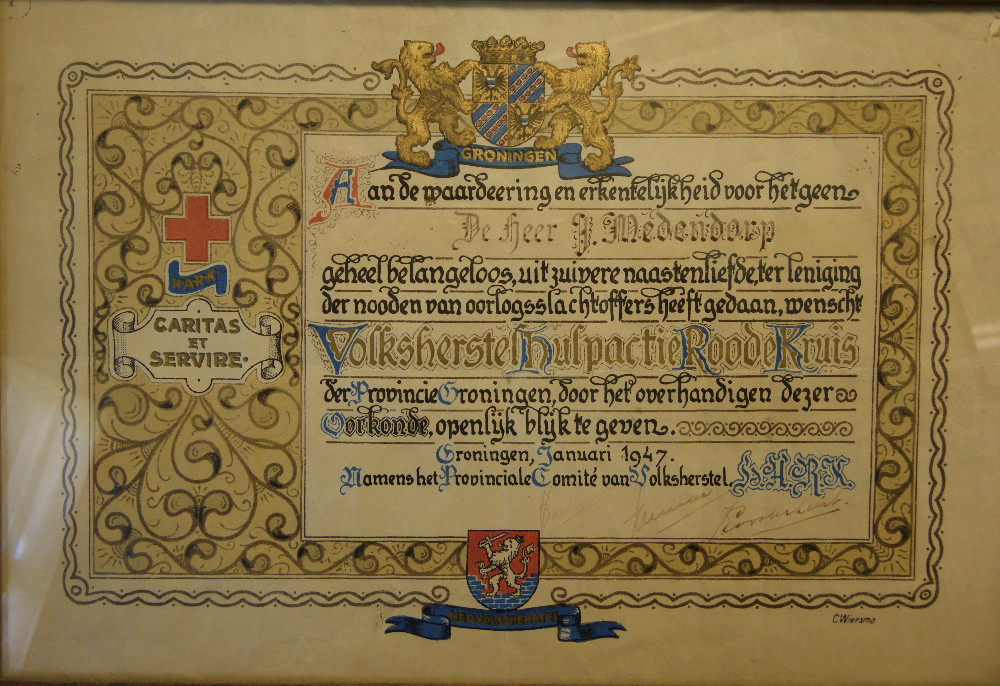 GRONINGEN
Aan de waardeering en erkentelijkheid voor hetgeen
De Heer J. Medendorp
geheel belangeloos, uit zuivere naastenliefde, ter leniging
der nooden van oorlogsslachtoffers heeft gedaan, wenscht
Volksherstel Hulpactie Roode Kruis
der Provincie Groningen, door het overhandigen dezer
Oorkonde, openlijk blijk te geven.
Groningen, Januari 1947.
Namens het Provinciale Comité van Volksherstel. H.A.R.K.
HARK
CARITAS
ET
SERVIRE.
NED. VOLKSHERSTEL
C. Wiersma